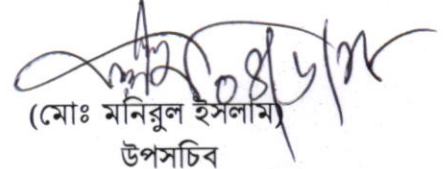 (মোঃ মনিরুল ইসলাম)
উপসচিব